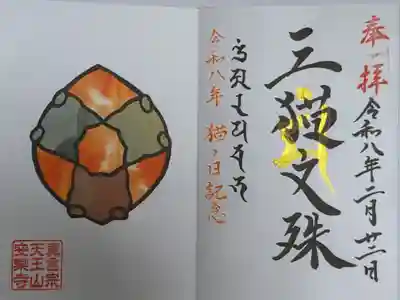 奉拝
令和八年二月廿二日
三猫文殊
令和八年 猫の日記念
真言宗
天王山